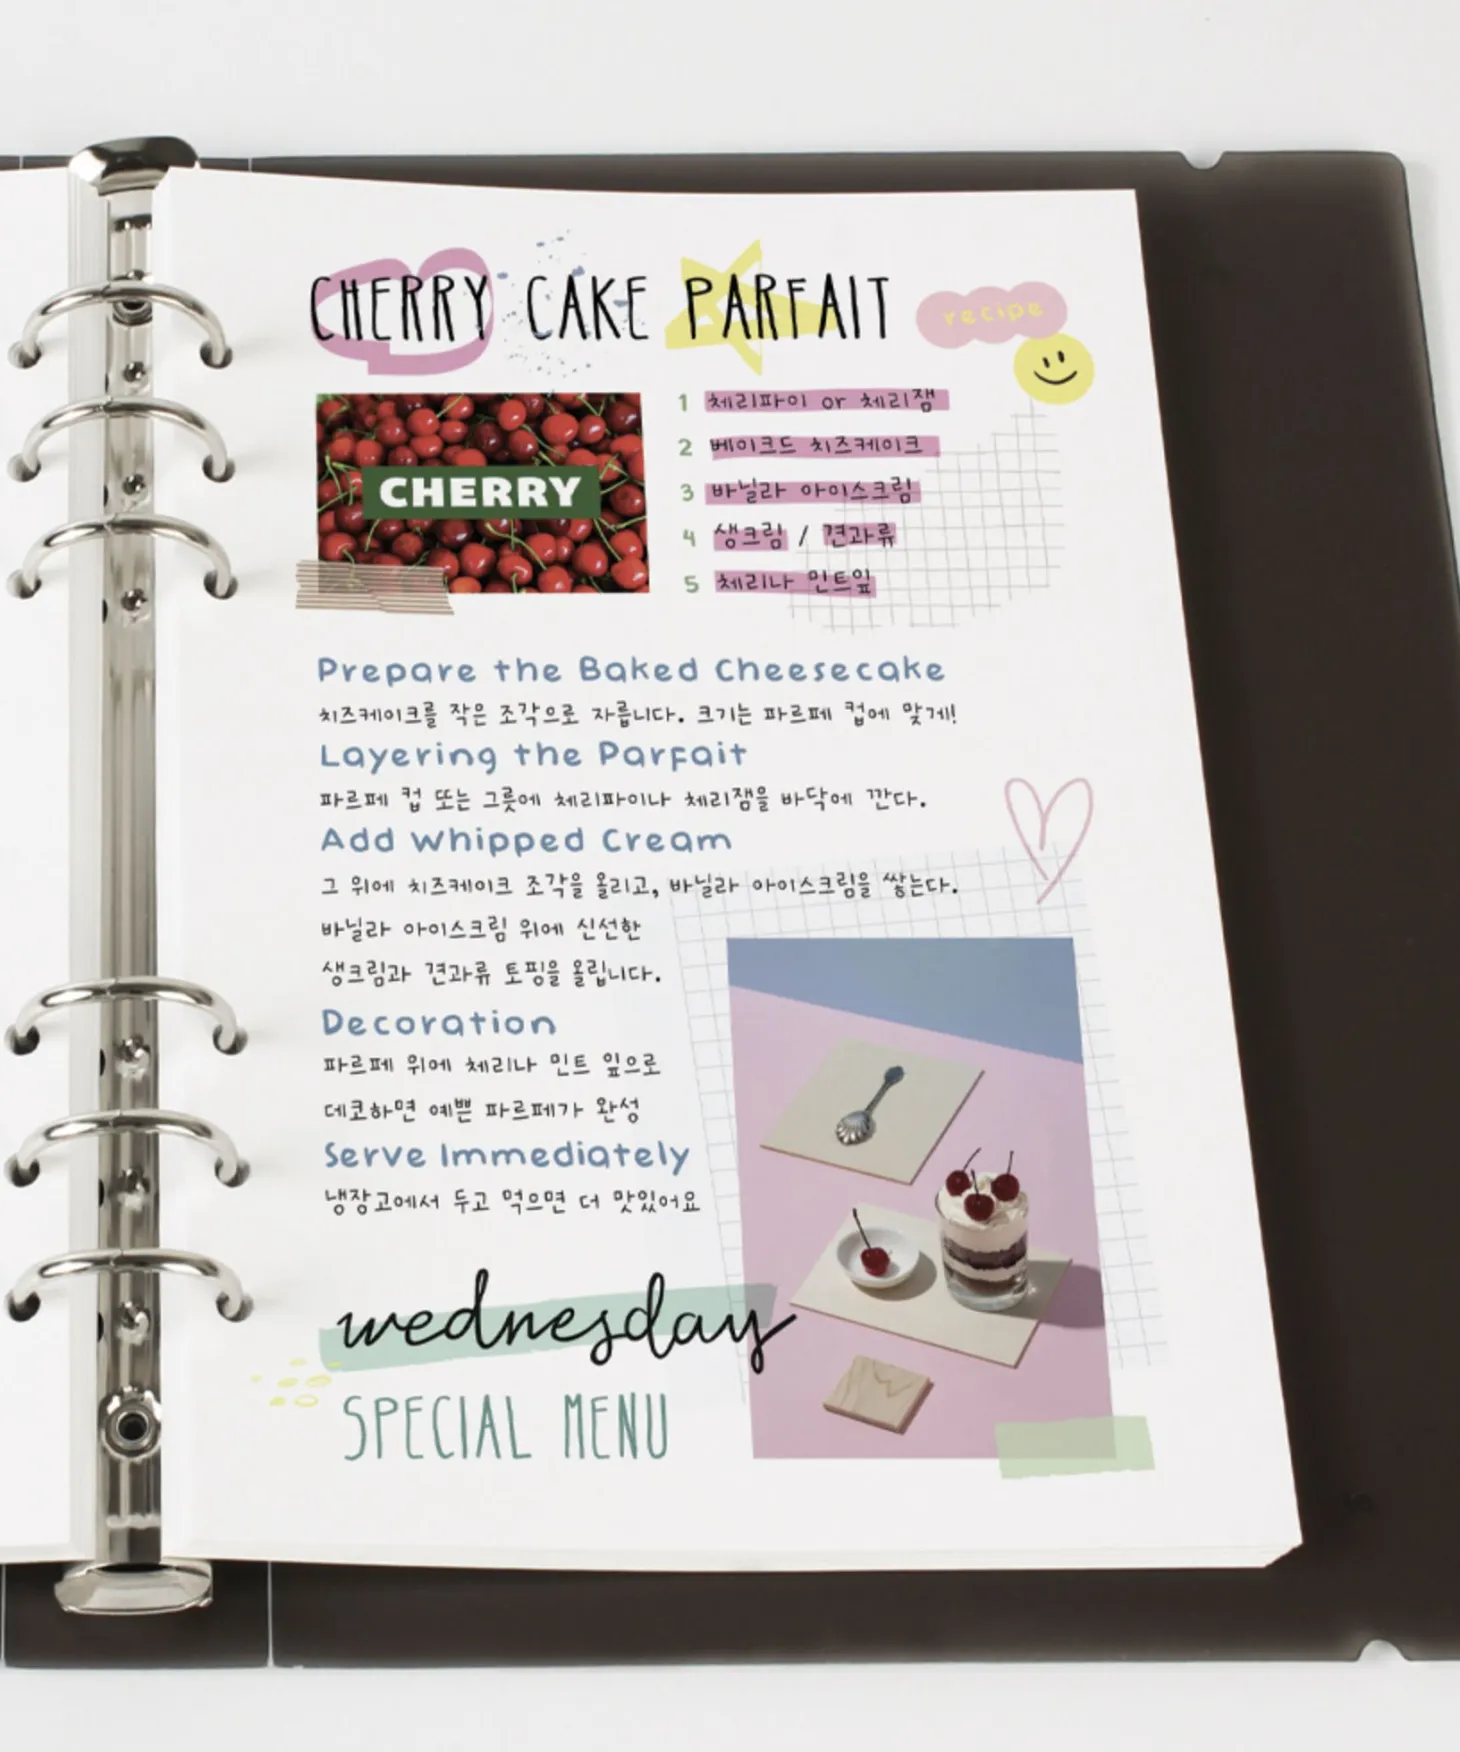 CHERRY CAKE PARFAIT
recipe
CHERRY
1 체리파이 or 체리잼
2 베이크드 치즈케이크
3 바닐라 아이스크림
4 생크림 / 견과류
5 체리나 민트잎
Prepare the Baked Cheesecake
치즈케이크를 작은 조각으로 자릅니다. 크기는 파르페 컵에 맞게!
Layering the Parfait
파르페 컵 또는 그릇에 체리파이나 체리잼을 바닥에 깐다.
Add Whipped Cream
그 위에 치즈케이크 조각을 올리고, 바닐라 아이스크림을 쌓는다.
바닐라 아이스크림 위에 신선한
생크림과 견과류 토핑을 올립니다.
Decoration
파르페 위에 체리나 민트 잎으로
데코하면 예쁜 파르페가 완성
Serve Immediately
냉장고에서 두고 먹으면 더 맛있어요
wednesday
SPECIAL MENU